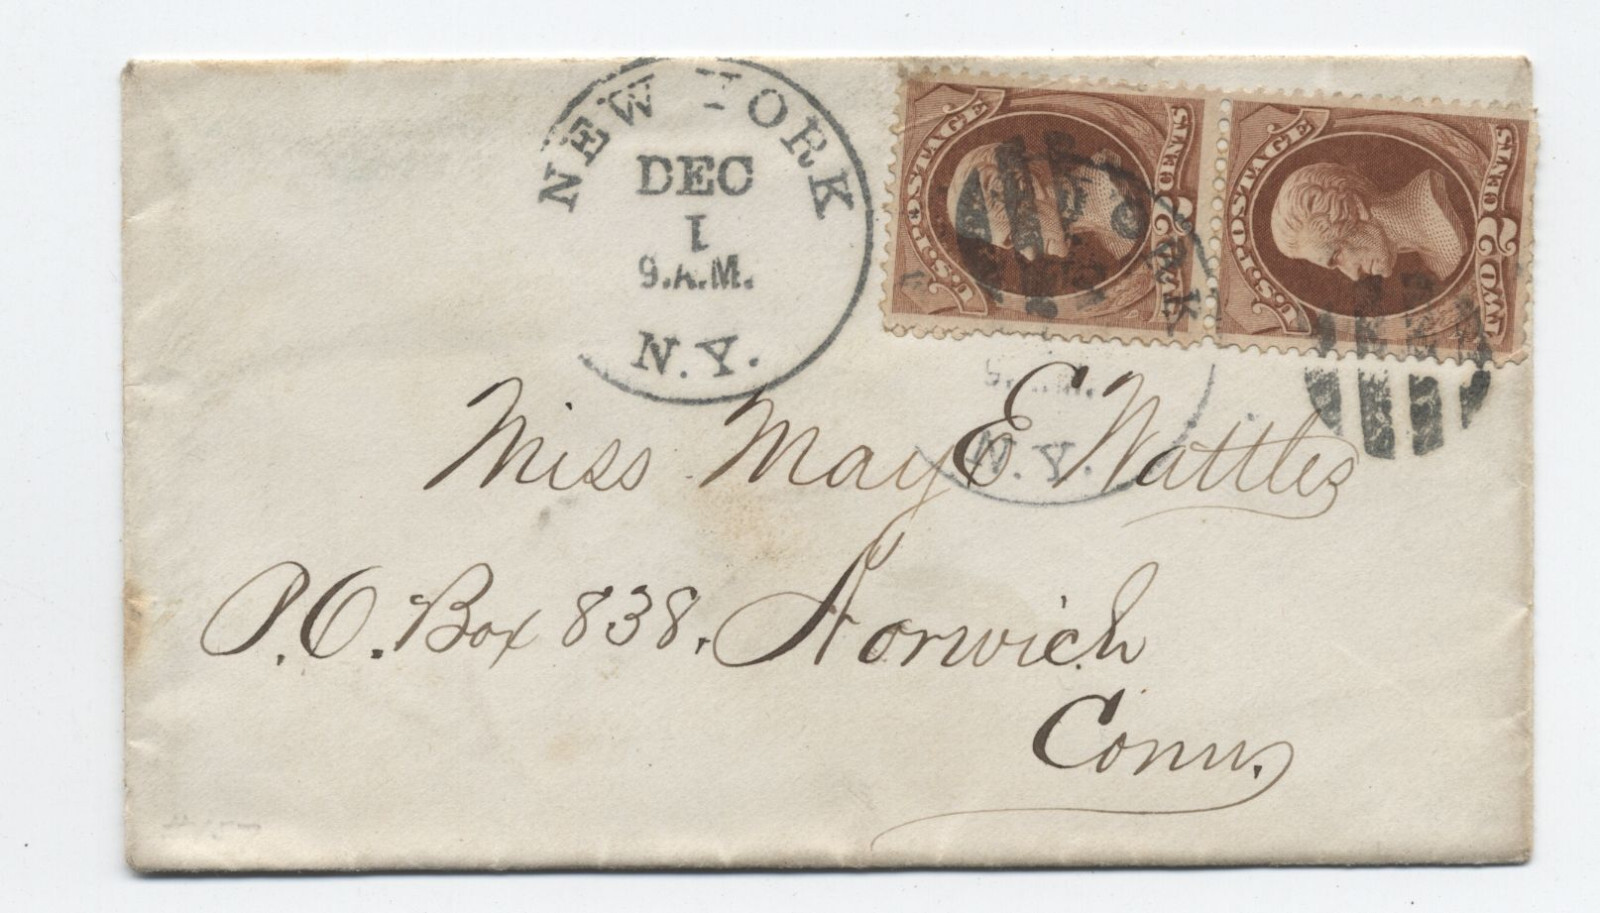 NEW YORK
DEC
1
9.A.M.
N.Y.
U.S. POSTAGE
TWO 2 CENTS
U.S. POSTAGE
TWO 2 CENTS
N.Y.
Miss May E Wattles
P.O. Box 838. Norwich
Conn.